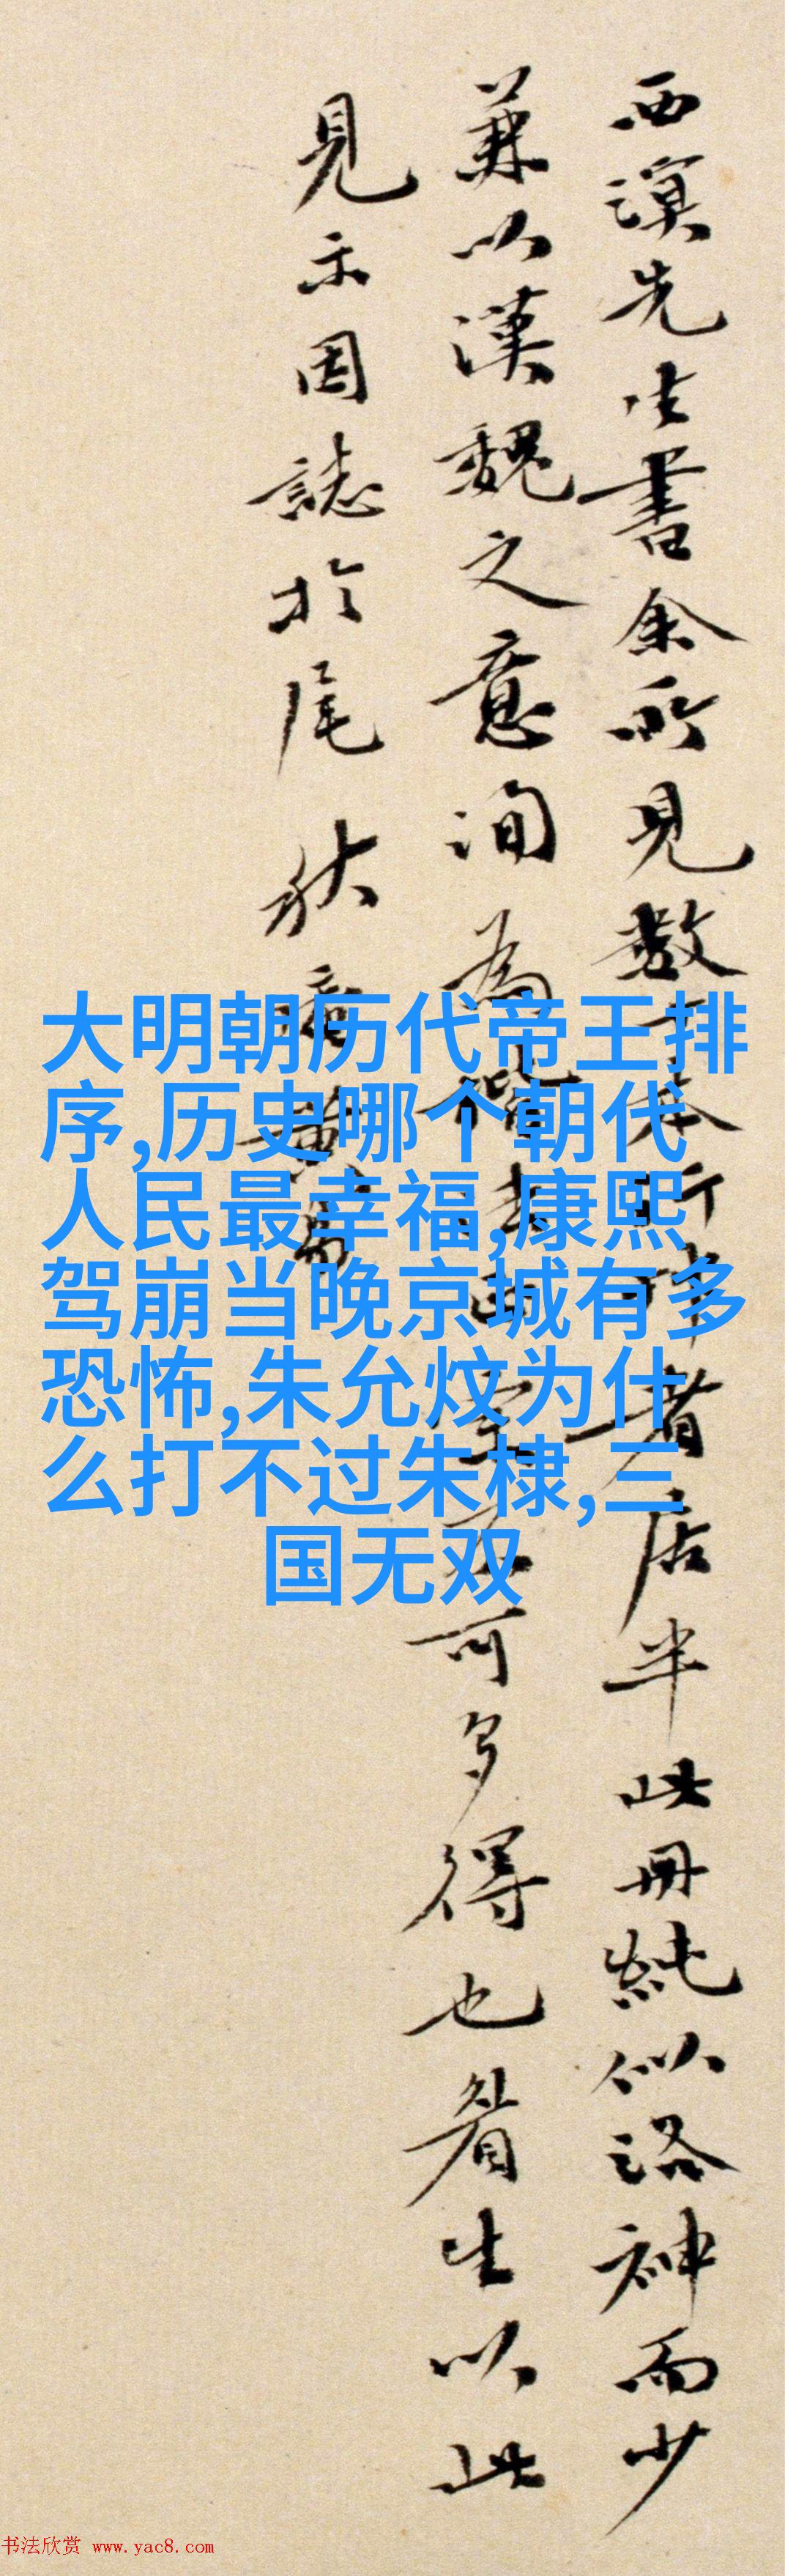 西溟先生書余所見數十本所臨者居半此冊純似洛神而少
兼以漢魏之意洵為
可多得也眉生以此
見示因誌於尾 秋盦黃易
大明朝历代帝王排
序,历史哪个朝代
人民最幸福,康熙
驾崩当晚京城有多
恐怖,朱允炆为什
么打不过朱棣,三
国无双
书法欣赏 www.yac8.com